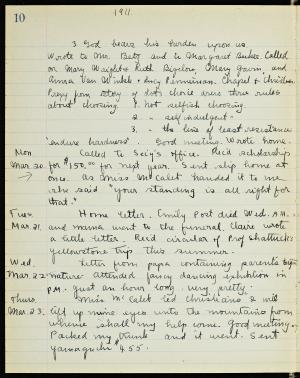 10
1911
3 God bears his burden upon us
Wrote to Mr. Betz and to Margaret Called
on Mary Wright & Ruth Bigelow, Mary Gavin and
Anna Van Winkle & Amy Chapel & Christian
from story of Lot's choice drew three rules
about choosing 1. not selfish choosing.
2. " self-indulgent -
3. " the line of least resistance.
"endure hardness" Good meeting. Wrote home.
Mon Called to Sec'y's office. Rec'd scholarship
Mar. 20. for $150.00 for next year. Sent slip home at
once. As Miss McCalet handed it to me
she said "your standing is all right for
that."
Tues Home letter. Emily Post died Wed. A.M.
Mar. 21. and mama went to the funeral. Claire wrote
a little letter. Rec'd circular of Prof Shattuck's
Yellowstone trip this summer.
Wed. Letter from papa, contains parents sig-
Mar. 22 nature. Attended fancy dancing exhibition in
P.M. just an hour long. very pretty.
Thurs. Miss McCalet led Christians I will
Mar. 23. lift up mine eyes unto the mountains from
whence shall my help come. Good meeting.
Packed my trunk and it went. Sent
Yamaguchi 4.55.